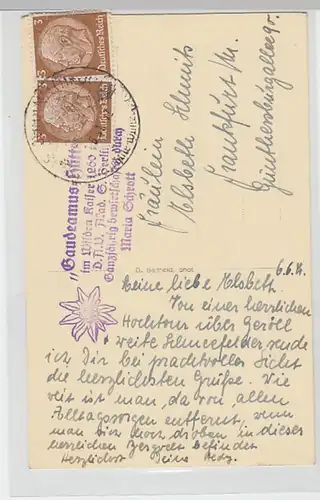 3 3
Deutsches Reich
3 3
Deutsches Reich
"Gaudeamus-Hütte"
im Wilden Kaiser 1260
D. A. V. Akad. S. Berlin
Ganzjährig bewirtschaftet durch
Maria Schrott
Fräulein
Elsbeth Schmits
Frankfurt/M.
Günthersburgallee
phot.
6.6.
Meine liebe Elsbeth.
Von einer herrlichen
Hochtour über Geröll
weite Schneefelder sende
ich Dir bei prachtvoller Sicht
die herzlichsten Grüße. Wie
weit ist man da von allen
Alltagssorgen entfernt, wenn
man sich hoch droben in dieser
herrlichen Bergwelt befindet
Herzlichst Deine